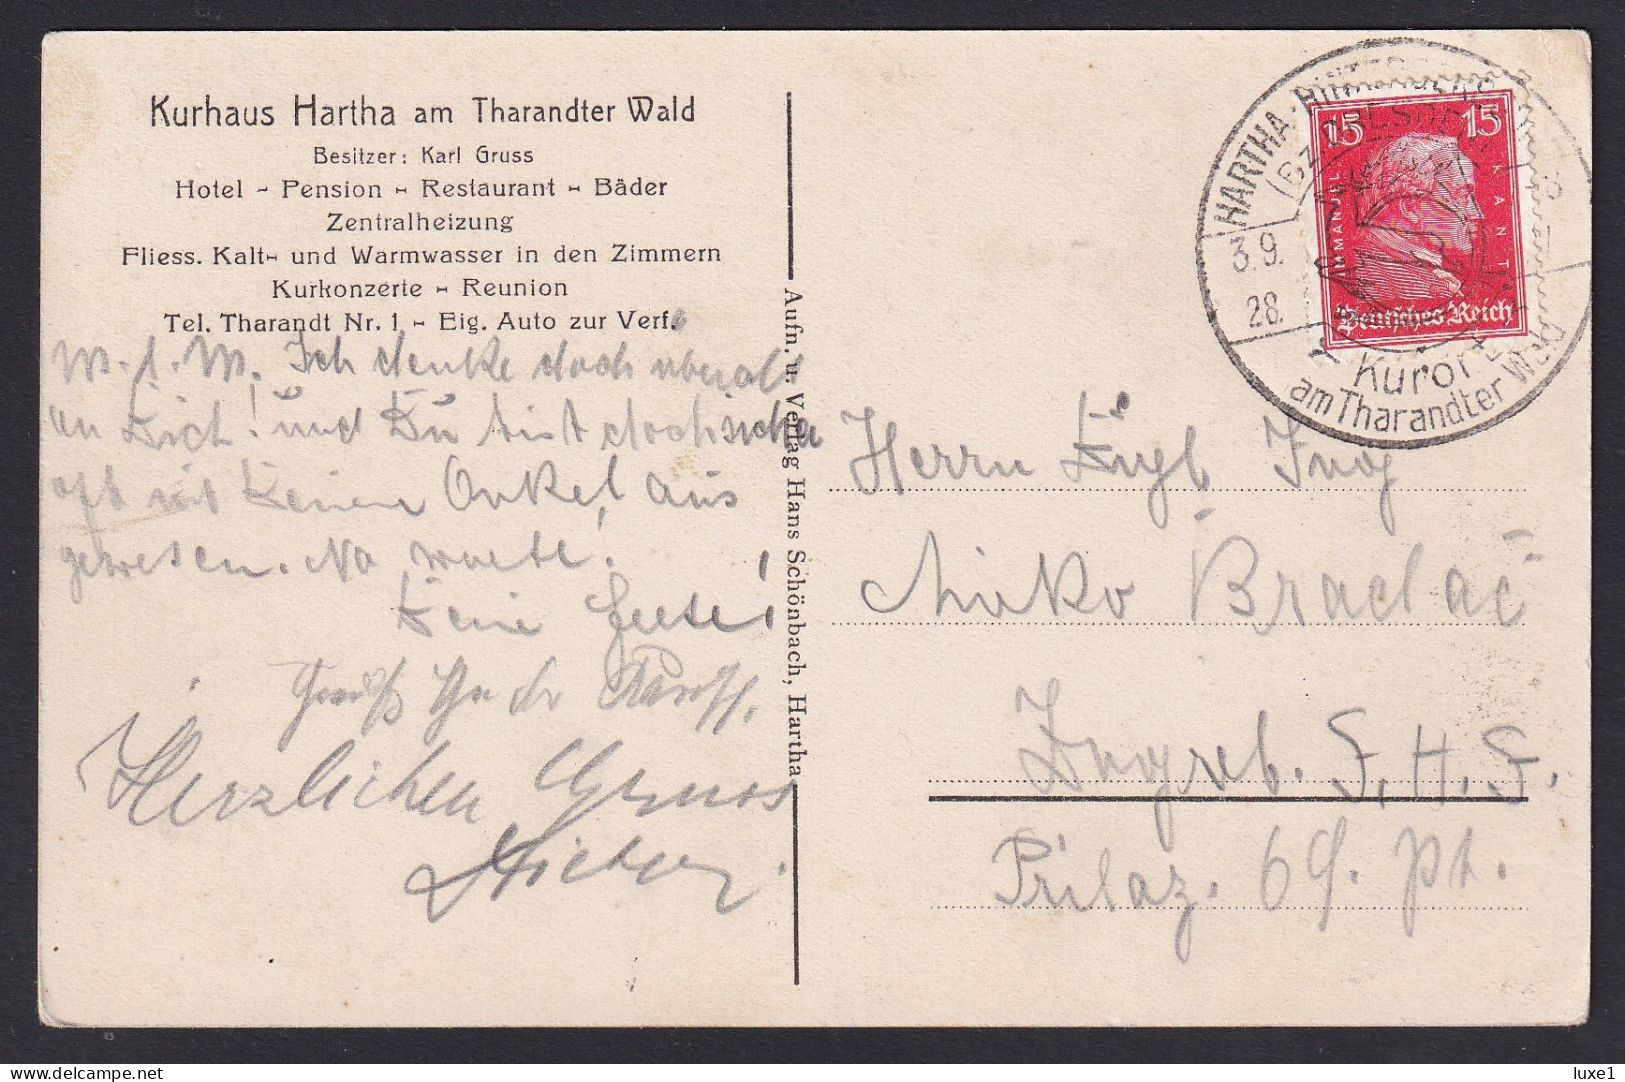 Kurhaus Hartha am Tharandter Wald
Besitzer: Karl Gruss
Hotel - Pension - Restaurant - Bäder
Zentralheizung
Fliess. Kalt- und Warmwasser in den Zimmern
Kurkonzerte - Reunion
Tel. Tharandt Nr. 1 - Eig. Auto zur Verf.
M. l. M. Ich denke doch überall
an Dich! und Du bist doch sicher
oft mit Deinem Onkel aus
gewesen. Na warte!
Deine
Herzlichen Gruss
Aufn. u. Verlag Hans Schönbach, Hartha
HARTHA
(Bz. DRESDEN)
3.9.
28.
Kurort
am Tharandter Wald
15 15
IMMANUEL KANT
Deutsches Reich
Herrn
Mirko
Zagreb. S.H.S.
Prilaz. 69. pt.
luxe1